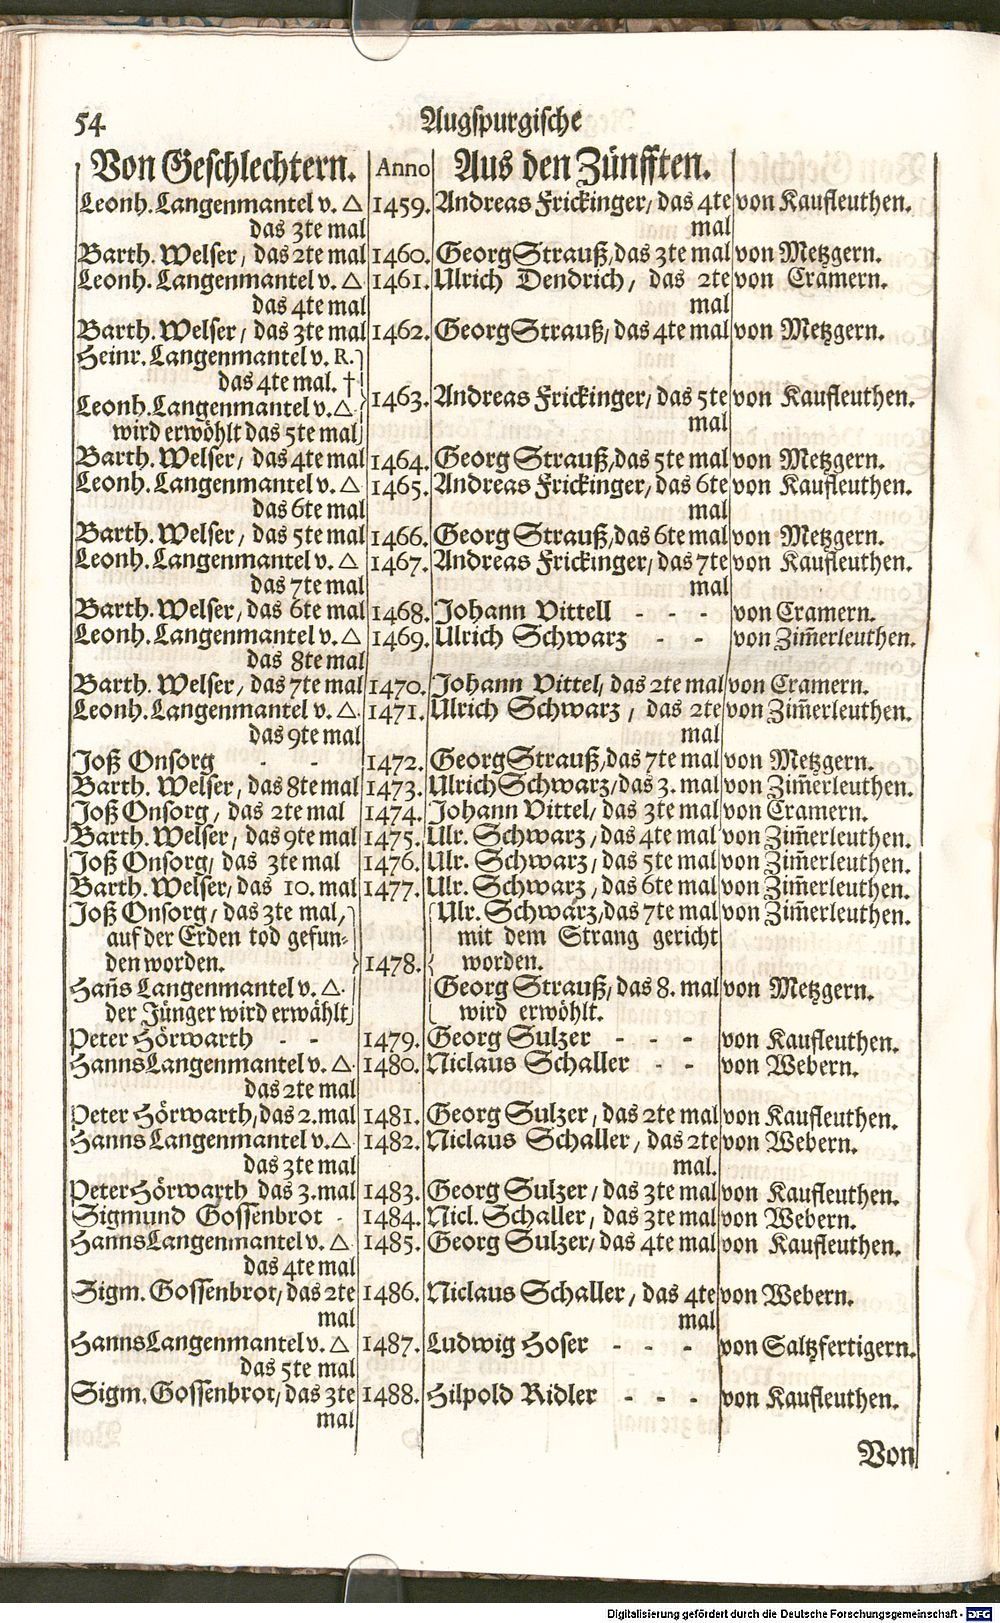 54 Augspurgische
Von Geschlechtern. Anno Aus den Zünfften.
Leonh. Langenmantel v. △ 1459. Andreas Frickinger/ das 4te von Kaufleuthen.
das 3te mal mal
Barth. Welser/ das 2te mal 1460. Georg Strauß/das 3te mal von Metzgern.
Leonh. Langenmantel v. △ 1461. Ulrich Dendrich/ das 2te von Cramern.
das 4te mal mal
Barth. Welser/ das 3te mal 1462. Georg Strauß/ das 4te mal von Metzgern.
Heinr. Langenmantel v. R.
das 4te mal. †
Leonh. Langenmantel v. △ 1463. Andreas Frickinger/ das 5te von Kaufleuthen.
wird erwöhlt das 5te mal mal
Barth. Welser/ das 4te mal 1464. Georg Strauß/das 5te mal von Metzgern.
Leonh. Langenmantel v. △ 1465. Andreas Frickinger/ das 6te von Kaufleuthen.
das 6te mal mal
Barth. Welser/ das 5te mal 1466. Georg Strauß/das 6te mal von Metzgern.
Leonh. Langenmantel v. △ 1467. Andreas Frickinger/ das 7te von Kaufleuthen.
das 7te mal mal
Barth. Welser/ das 6te mal 1468. Johann Vittell - - - von Cramern.
Leonh. Langenmantel v. △ 1469. Ulrich Schwarz - - von Zim̄erleuthen.
das 8te mal
Barth. Welser/ das 7te mal 1470. Johann Vittel/ das 2te mal von Cramern.
Leonh. Langenmantel v. △. 1471. Ulrich Schwarz/ das 2te von Zim̄erleuthen.
das 9te mal mal
Joß Onsorg - - 1472. Georg Strauß/das 7te mal von Metzgern.
Barth. Welser/ das 8te mal 1473. Ulrich Schwarz/das 3. mal von Zim̄erleuthen.
Joß Onsorg/ das 2te mal 1474. Johann Vittel/ das 3te mal von Cramern.
Barth. Welser/ das 9te mal 1475. Ulr. Schwarz/ das 4te mal von Zim̄erleuthen.
Joß Onsorg/ das 3te mal 1476. Ulr. Schwarz/ das 5te mal von Zim̄erleuthen.
Barth. Welser/ das 10. mal 1477. Ulr. Schwarz/ das 6te mal von Zim̄erleuthen.
Joß Onsorg/ das 3te mal/ Ulr. Schwarz/das 7te mal von Zim̄erleuthen.
auf der Erden tod gefun- mit dem Strang gericht
den worden. 1478. worden.
Han̄s Langenmantel v. △. Georg Strauß/ das 8. mal von Metzgern.
der Jünger wird erwählt wird erwöhlt.
Peter Hörwarth - - 1479. Georg Sulzer - - - von Kaufleuthen.
Hanns Langenmantel v. △. 1480. Niclaus Schaller - - von Webern.
das 2te mal
Peter Hörwarth/das 2.mal 1481. Georg Sulzer/ das 2te mal von Kaufleuthen.
Hanns Langenmantel v. △ 1482. Niclaus Schaller/ das 2te von Webern.
das 3te mal mal.
Peter Hörwarth das 3.mal 1483. Georg Sulzer/ das 3te mal von Kaufleuthen.
Sigmund Gossenbrot - 1484. Nicl. Schaller/ das 3te mal von Webern.
Hanns Langenmantel v. △ 1485. Georg Sulzer/ das 4te mal von Kaufleuthen.
das 4te mal
Sigm. Gossenbrot/ das 2te 1486. Niclaus Schaller/ das 4te von Webern.
mal mal
Hanns Langenmantel v. △ 1487. Ludwig Hoser - - - von Saltzfertigern.
das 5te mal
Sigm. Gossenbrot/ das 3te 1488. Hilpold Ridler - - - von Kaufleuthen.
mal
Von
Digitalisierung gefördert durch die Deutsche Forschungsgemeinschaft - DFG